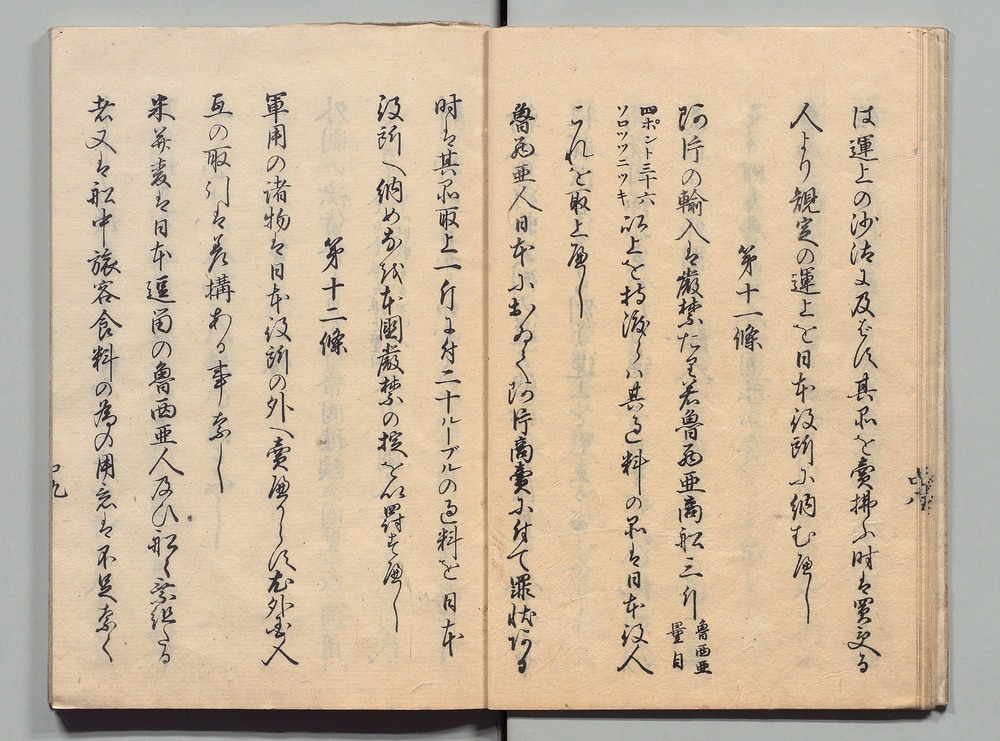 は運上の沙汰に及はす其品を賣拂ふ時は買受る
人より規定の運上を日本役所に納むへし
第十一條
阿片の輸入は嚴禁たり若魯西亜商船三斤 魯西亜量目
四ポント三十六ソロツニツキ 以上を持渡らは其過料の品は日本役人
これを取上へし
魯西亜人日本において阿片商賣に付て罪状ある
時は其品取上一斤に付二十ルーブルの過料を日本
役所へ納め且本國嚴禁の掟を以罰すへし
第十二條
軍用の諸物は日本役所の外へ賣へからす尤外国人
互の取引は差構ある事なし
米并麦は日本逗留の魯西亜人及ひ船に乗組たる
者又は船中旅客食料の為の用意は不足なく